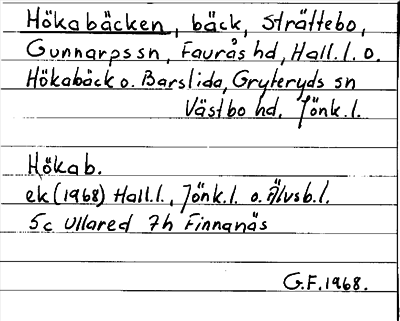 Hökabäcken, bäck, Strättebo,
Gunnarps sn, Faurås hd, Hall. l. o.
Hökabäck o. Barslida, Gryteryds sn
Västbo hd. Jönk. l.
Hökab.
ek (1968) Hall. l., Jönk. l. o. Älvsb. l.
5c Ullared 7h Finnanäs
G.F. 1968.